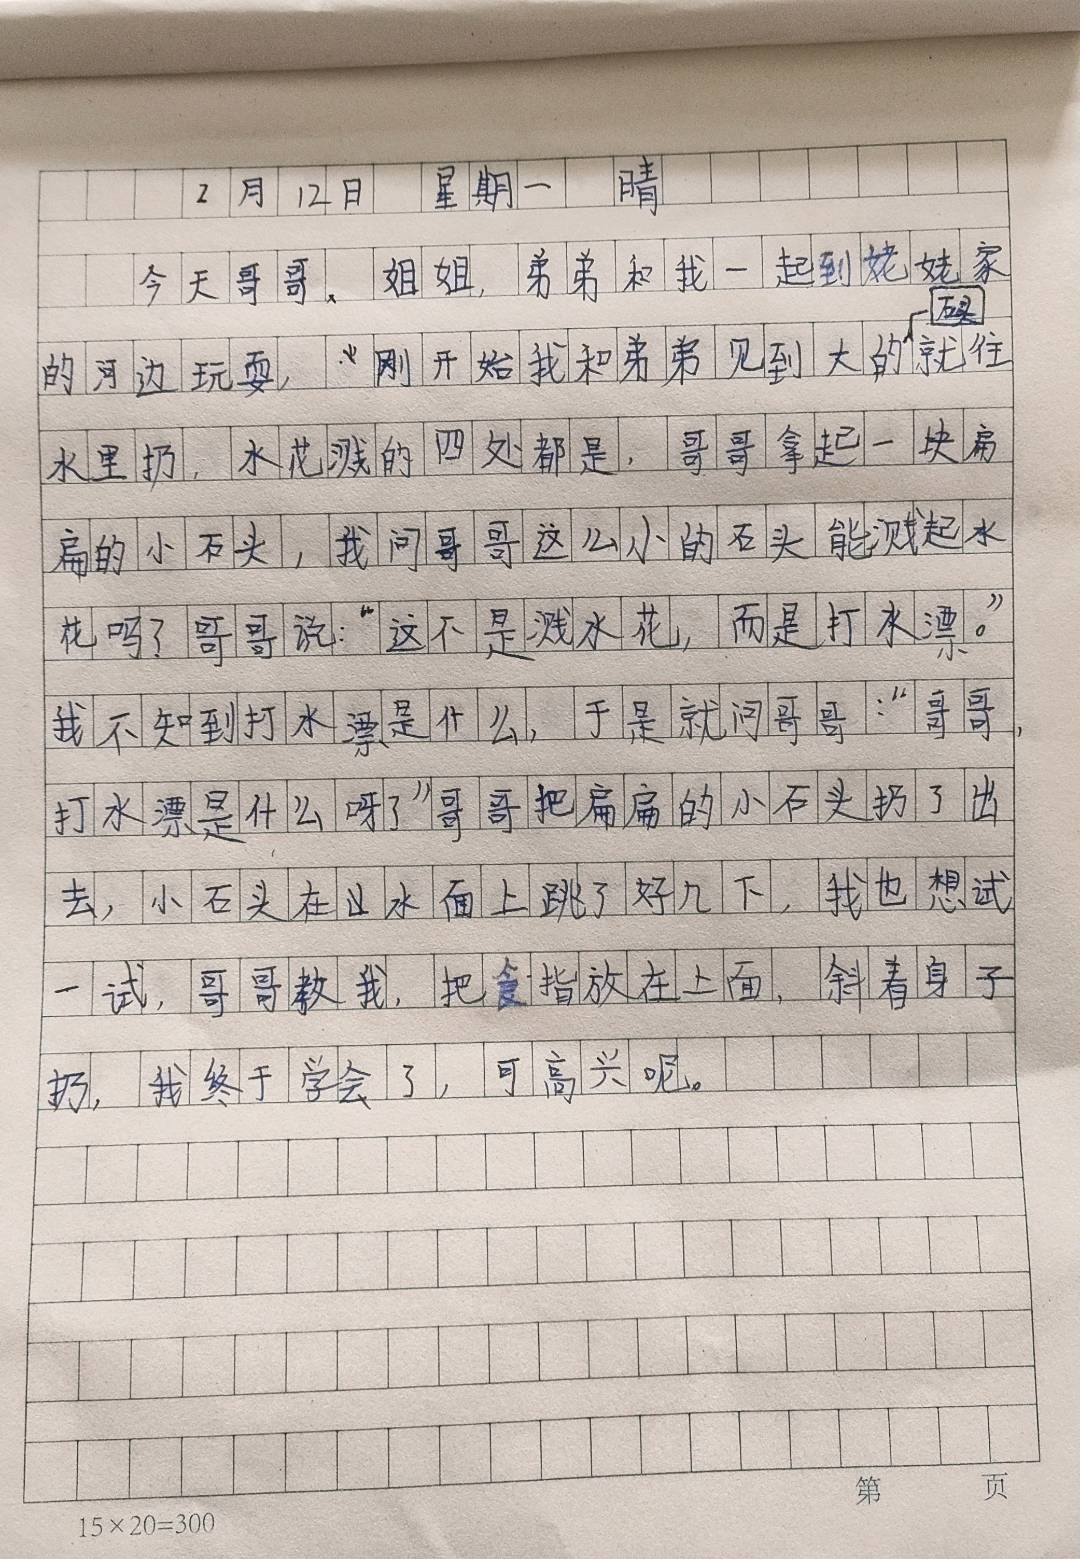 2月12日 星期一 晴
今天哥哥、姐姐,弟弟和我一起到姥姥家
的河边玩耍,刚开始我和弟弟见到大的石头就往
水里扔,水花溅的四处都是,哥哥拿起一块扁
扁的小石头,我问哥哥这么小的石头能溅起水
花吗?哥哥说:“这不是溅水花,而是打水漂。”
我不知到打水漂是什么,于是就问哥哥:“哥哥,
打水漂是什么呀?”哥哥把扁扁的小石头扔了出
去,小石头在水面上跳了好几下,我也想试
一试,哥哥教我,把食指放在上面,斜着身子
扔,我终于学会了,可高兴呢。
第 页
15×20=300